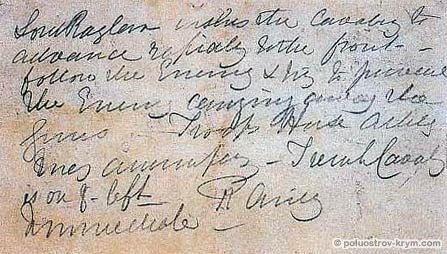 Lord Raglan wishes the Cavalry to
advance rapidly to the front –
follow the Enemy & try to prevent
the Enemy carrying away the
guns – Troop Horse Artily
may accompany – French Cavaly
is on yr left
Immediate R Airey
© poluostrov-krym.com